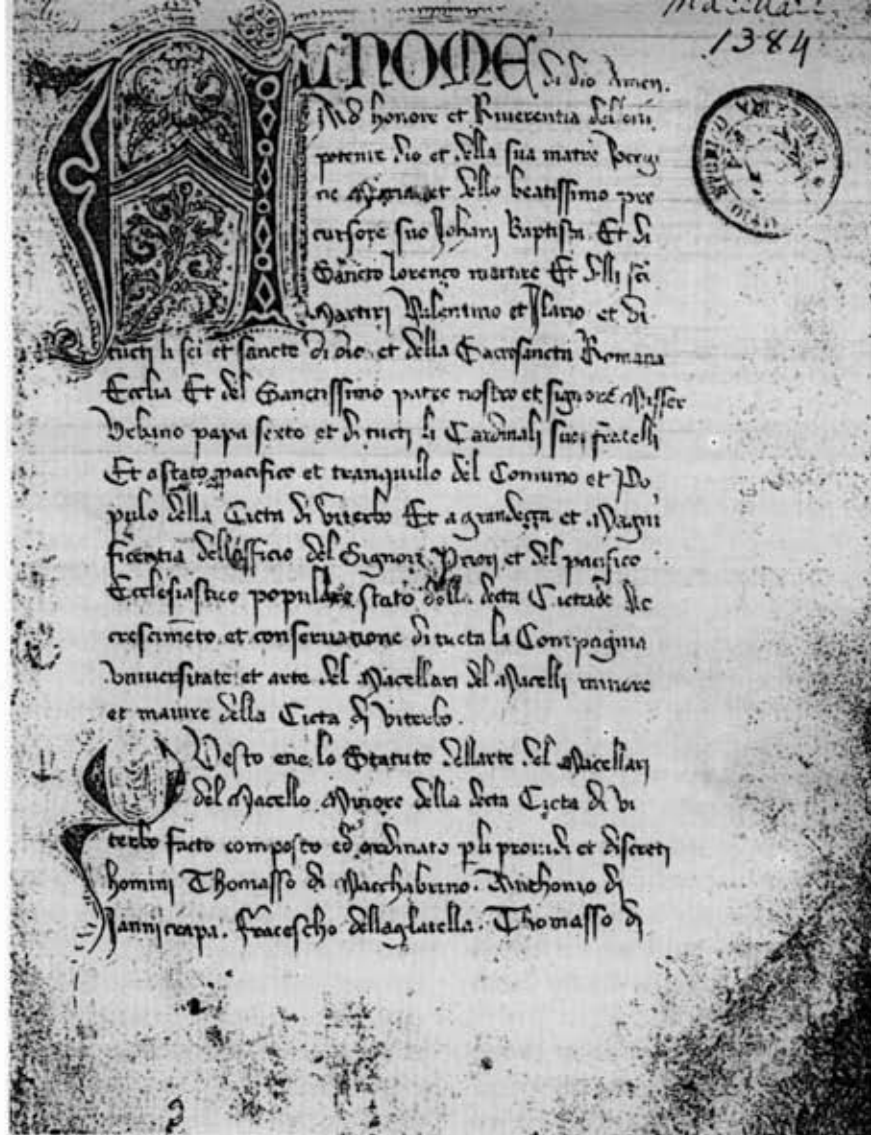 Macellari
1384
AL NOME di dio Amen.
Ad honore et Riverentia dell oni
potente dio et della sua matre Vergi
ne Maria et dello beatissimo pre
cursore suo Johani Baptista. Et di
Sancto Lorenço martire Et delli sci
Martiri Valentino et Ilario et di
tucti li sci et sancte di dio. et della Sacrosancta Romana
Ecclia Et del Sanctissimo patre nostro et signore Misser
Urbano papa sexto et di tucti li Cardinali suoi fratelli
Et a stato pacifico et tranquillo del Comuno et Po
pulo della Cicta di viterbo Et a grandeçça et Magni
ficentia dell officio del Signori Priori et del pacifico
Ecclesiastico populare stato della decta Cictade Ac
crescimeto. et conservatione di tucta la Compagnia
Universitate et arte del Macellari del Macelli minore
et maiure della Cicta di viterbo.
Questo ene lo Statuto dellarte del Macellari
del Macello Minore della decta Cicta di Vi
terbo facto composto ed ordinato p li providi et discreti
homini Thomasso di Macchabruno. Anthonio di
Janni crapa. fracescho dellaglaiella. Thomasso di